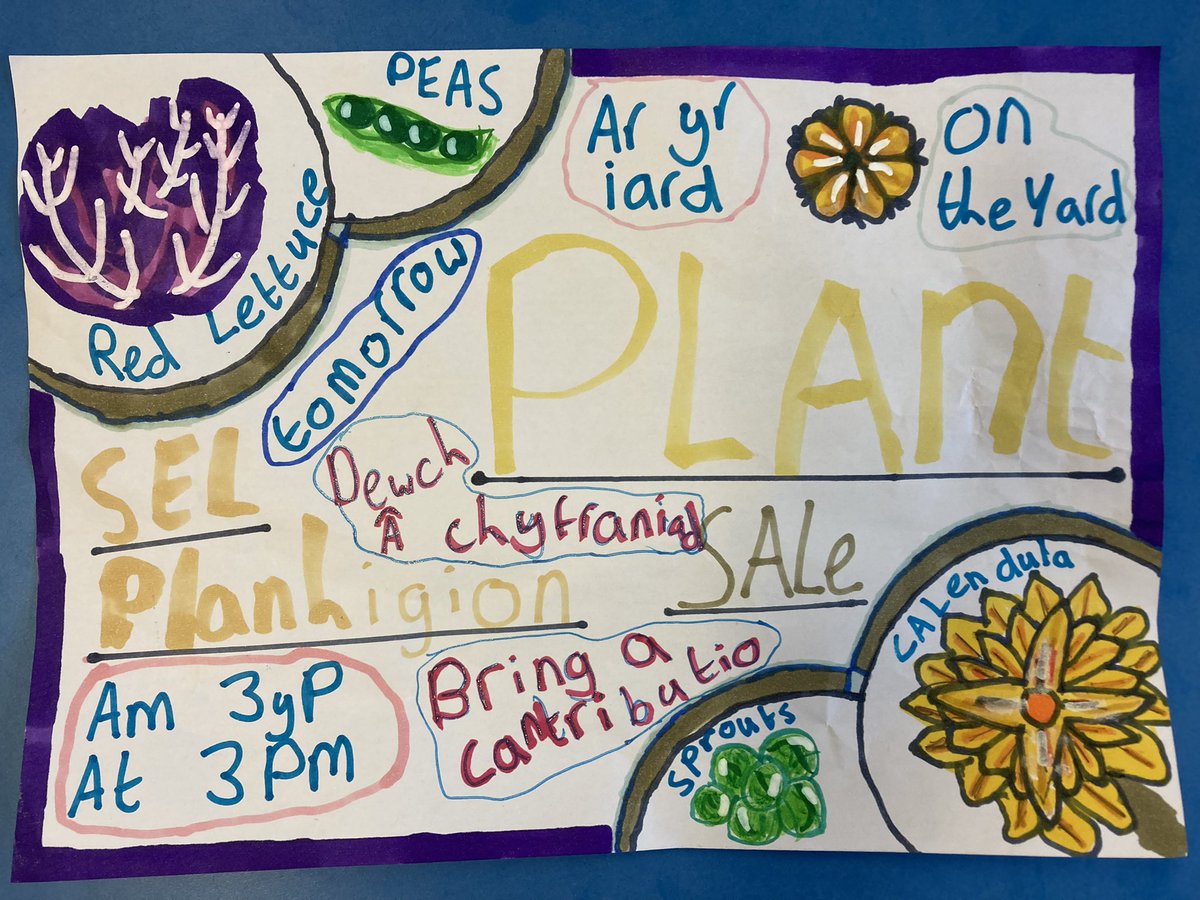 PEAS
Ar yr
iard
on
the Yard
Red Lettuce
tomorrow
PLAnt
SEL
Planhigion
Dewch
Â chyfraniad
SALe
CALendula
Am 3yP
At 3Pm
Bring a
Contributio
Sprouts